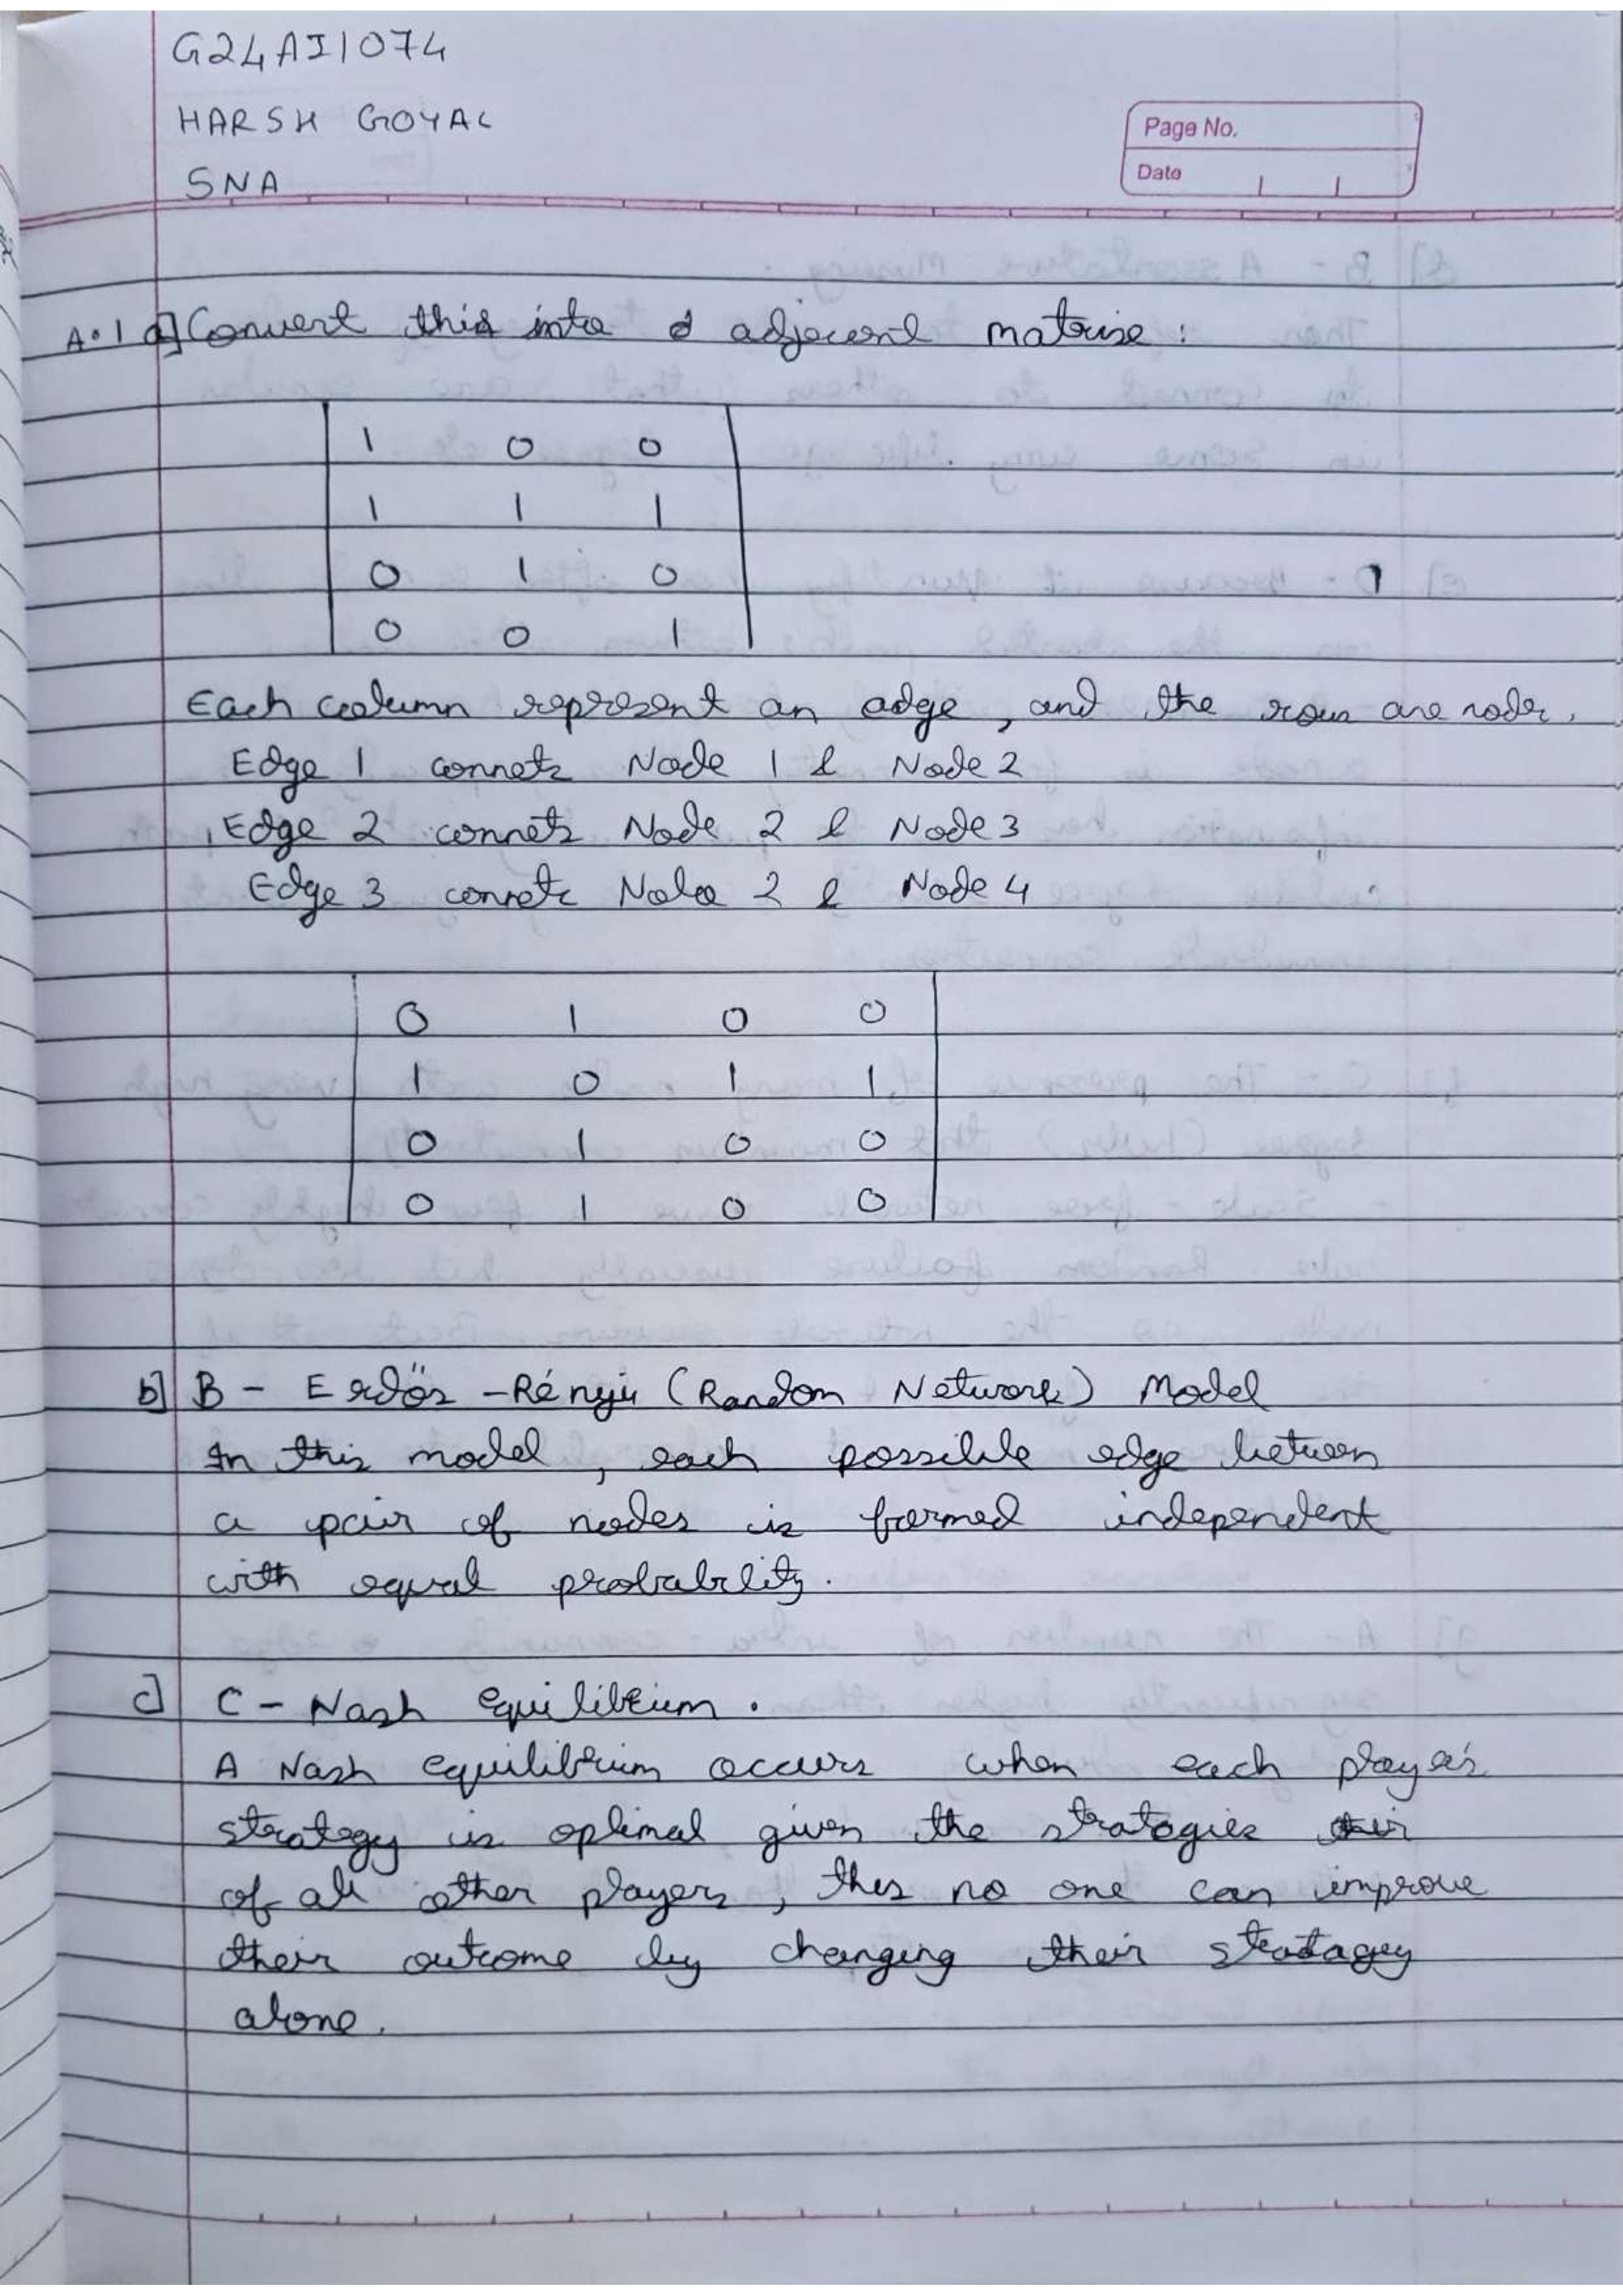 G24AI1074
HARSH GOYAL
SNA
Page No.
Date
A.1 a] Convert this into a adjecent matrix :
1 0 0
1 1 1
0 1 0
0 0 1
Each column represent an edge, and the rows are nodes.
Edge 1 connets Node 1 & Node 2
Edge 2 connets Node 2 & Node 3
Edge 3 connets Node 2 & Node 4
0 1 0 0
1 0 1 1
0 1 0 0
0 1 0 0
b] B - Erdős - Rényi (Random Network) Model
In this model, each possible edge between
a pair of nodes is formed independent
with equal probability.
c] C - Nash equilibrium.
A Nash equilibrium occurs when each player's
strategy is optimal given the strategies
of all other players, thus no one can improve
their outcome by changing their stratagey
alone.